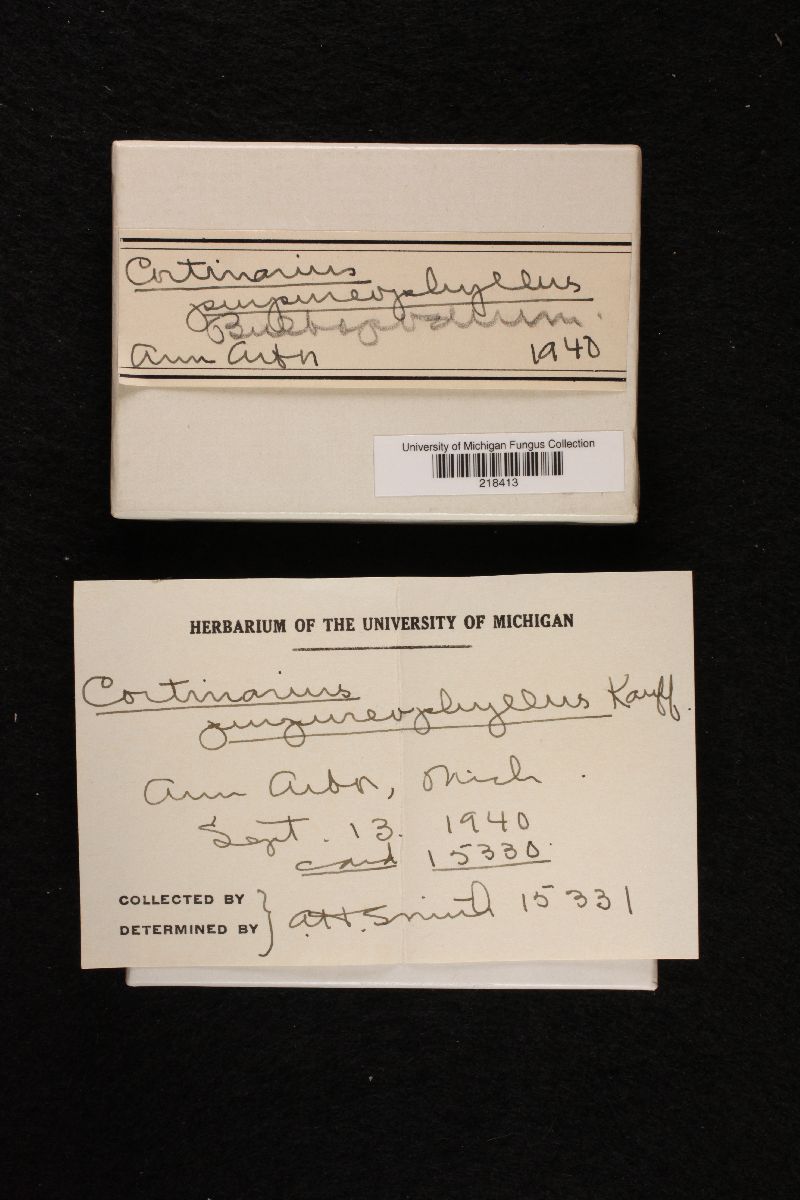 Cortinarius
purpureophyllus
Bulbopodium.
Ann Arbor 1940
University of Michigan Fungus Collection
218413
HERBARIUM OF THE UNIVERSITY OF MICHIGAN
Cortinarius
purpureophyllus Kauff.
Ann Arbor, Mich.
Sept. 13. 1940
card 15330.
COLLECTED BY
DETERMINED BY
A.H. Smith 15331